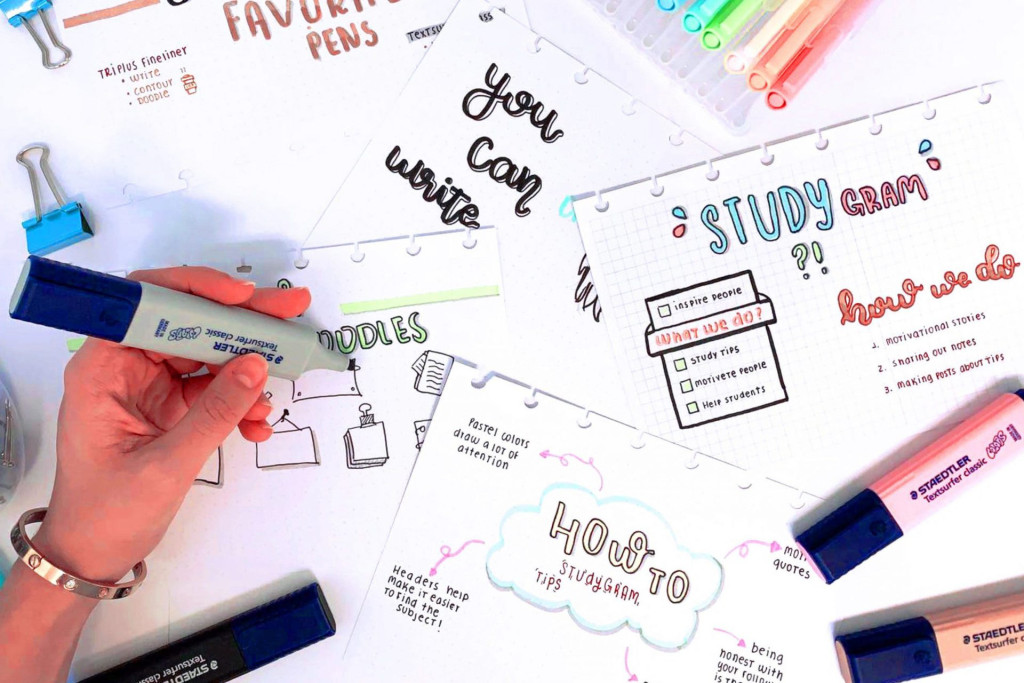 FAVORITE
PENS
TRIPLUS FINELINER
• WRITE
• CONTOUR
• DOODLE
you
can
write
STUDYGRAM
?!
INSPIRE PEOPLE
WHAT WE DO?
STUDY TIPS
MOTIVETE PEOPLE
HELP STUDENTS
how we do
1. MOTIVATIONAL STORIES
2. SHARING OUR NOTES
3. MAKING POSTS ABOUT TIPS
DOODLES
STAEDTLER
Textsurfer classic
PASTEL COLORS
DRAW A LOT OF
ATTENTION
HOW TO
STUDYGRAM
TIPS
HEADERS HELP
MAKE IT EASIER
TO FIND THE
SUBJECT!
QUOTES
BEING
HONEST WITH
YOUR
STAEDTLER
Textsurfer classic
STAEDTLER
Textsurfer
STAEDTLER
Textsurfer classic